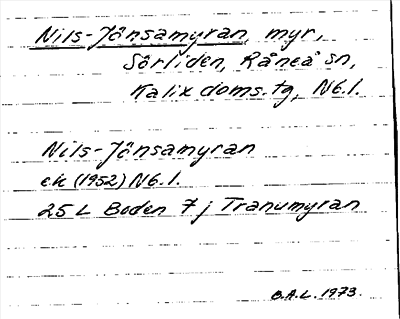 Nils-Jönsamyran, myr,
Sörliden, Råneå sn,
Kalix doms.tg, Nb.l.
Nils-Jönsamyran
ek (1952) Nb.l.
25 L Boden 7 j Tranumyran
B.A.L. 1973.